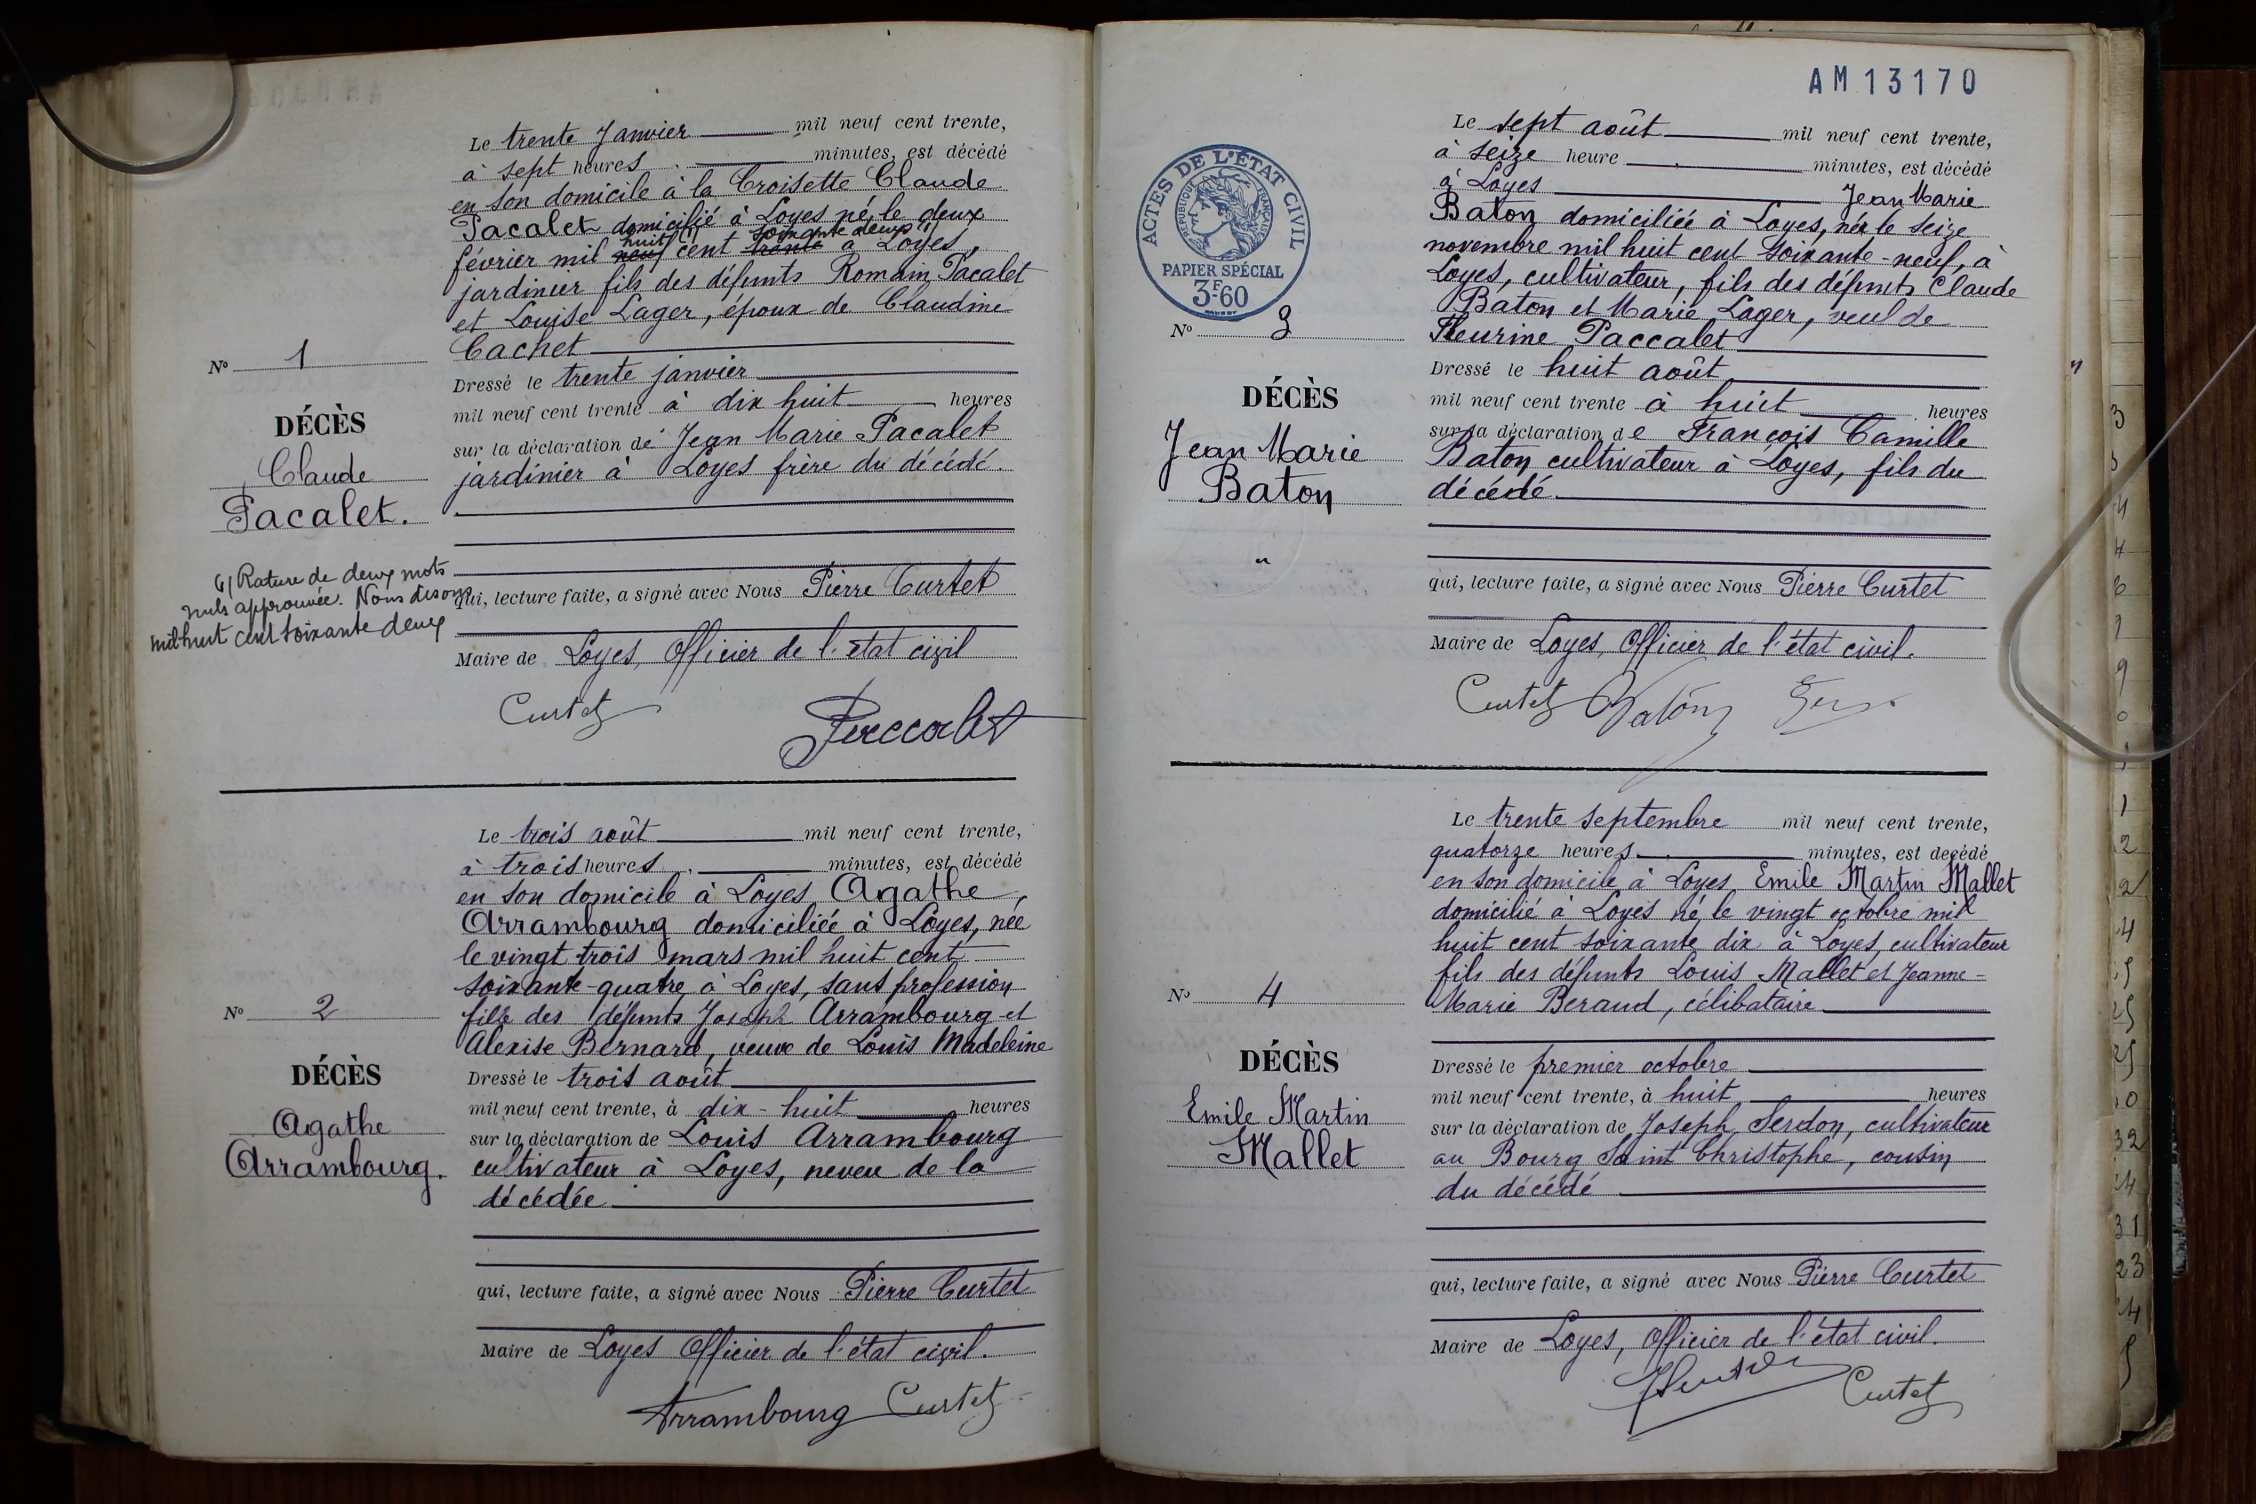 Le trente Janvier mil neuf cent trente,
à sept heures minutes, est décédé
en son domicile à la Croisette Claude
Pacalet domicilié à Loyes né, le deux
huit soixante deux (1)
février mil neuf cent trente à Loyes,
jardinier fils des défunts Romain Pacalet
et Louise Lager, époux de Claudine
Cachet
Nº 1
DÉCÈS
Claude
Pacalet.
Dressé le trente janvier
mil neuf cent trente à dix huit heures
sur la déclaration de Jean Marie Pacalet
jardinier à Loyes frère du décédé.
(1) Rature de deux mots
nuls approuvée. Nous disons
mil huit cent soixante deux
qui, lecture faite, a signé avec Nous Pierre Curtet
Maire de Loyes, Officier de l'état civil
Curtet Paccalet
Le trois août mil neuf cent trente,
à trois heures minutes, est décédé
en son domicile à Loyes Agathe
Arrambourg domiciliée à Loyes, née
le vingt trois mars mil huit cent
soixante-quatre à Loyes, sans profession
fille des défunts Joseph Arrambourg et
Alexise Bernard, veuve de Louis Madeleine
Nº 2
DÉCÈS
Agathe
Arrambourg.
Dressé le trois août
mil neuf cent trente, à dix-huit heures
sur la déclaration de Louis Arrambourg
cultivateur à Loyes, neveu de la
décédée
qui, lecture faite, a signé avec Nous Pierre Curtet
Maire de Loyes Officier de l'état civil.
Arrambourg Curtet
AM13170
ACTES DE L'ÉTAT CIVIL
RÉPUBLIQUE FRANÇAISE
PAPIER SPÉCIAL
3F60
Le sept août mil neuf cent trente,
à seize heure minutes, est décédé
à Loyes Jean Marie
Baton domiciliéé à Loyes, née le seize
novembre mil huit cent soixante-neuf, à
Loyes, cultivateur, fils des défunts Claude
Baton et Marie Lager, veuf de
Fleurine Paccalet
Nº 3
DÉCÈS
Jean Marie
Baton
Dressé le huit août
mil neuf cent trente à huit heures
sur la déclaration de François Camille
Baton cultivateur à Loyes, fils du
décédé
qui, lecture faite, a signé avec Nous Pierre Curtet
Maire de Loyes, Officier de l'état civil.
Curtet Baton
Le trente septembre mil neuf cent trente,
quatorze heures minutes, est decédé
en son domicile à Loyes Emile Martin Mallet
domicilié à Loyes né le vingt octobre mil
huit cent soixante dix à Loyes, cultivateur
fils des défunts Louis Mallet et Jeanne-
Marie Beraud, célibataire
Nº 4
DÉCÈS
Emile Martin
Mallet
Dressé le premier octobre
mil neuf cent trente, à huit heures
sur la déclaration de Joseph Serdon, cultivateur
au Bourg Saint Christophe, cousin
du décédé
qui, lecture faite, a signé avec Nous Pierre Curtet
Maire de Loyes, Officier de l'état civil.
Curtet